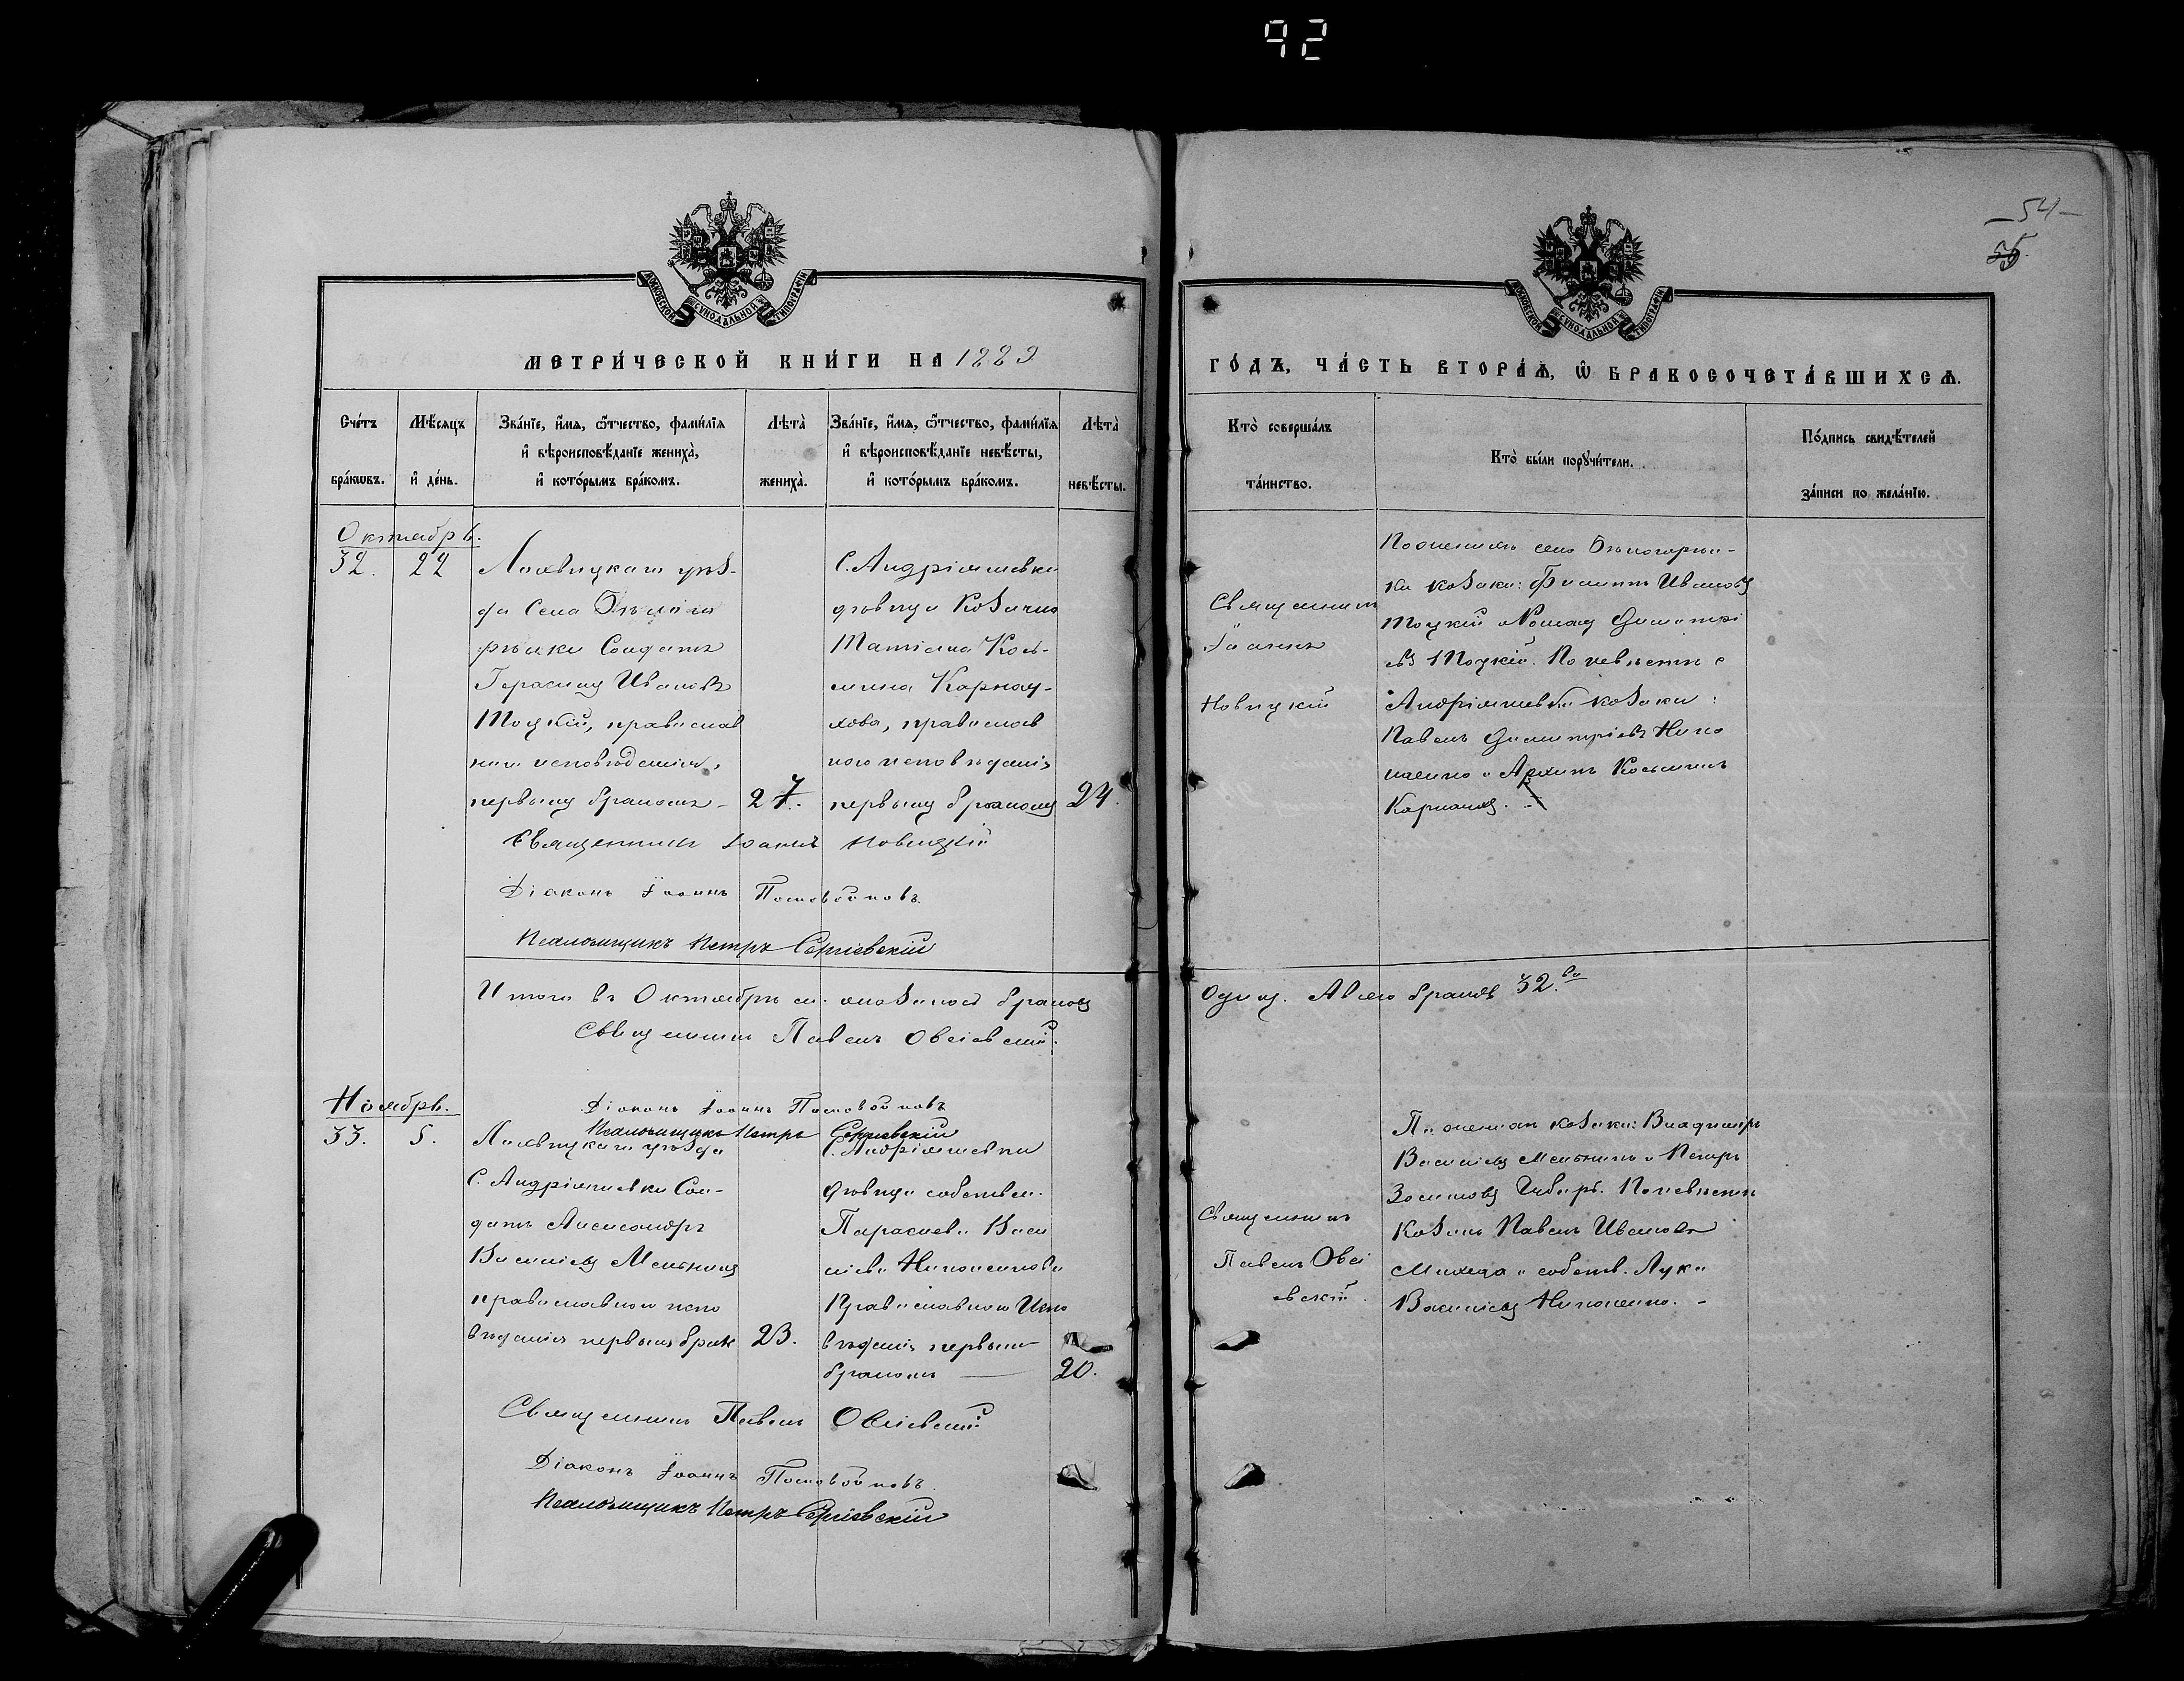 92
54
55.
МОСКОВСКОЙ СѴНОДАЛЬНОЙ ТИПОГРАФІИ
МОСКОВСКОЙ СѴНОДАЛЬНОЙ ТИПОГРАФІИ
МЕТРИ́ЧЕСКОЙ КНИ́ГИ НА 1889
ГО́ДЪ, ЧА́СТЬ ВТОРА́Ѧ, Ѿ БРАКОСОЧЕТА́ВШИХСѦ.
Сче́тъ бра́кѡвъ.
Мѣ́сѧцъ и҆ де́нь.
Зва́нїе, и҆́мѧ, ѻ҆́тчество, фамилїѧ и҆ вѣроисповѣ́данїе жениха̀, и҆ кото́рымъ бра́комъ.
Лѣта̀ жениха̀.
Зва́нїе, и҆́мѧ, ѻ҆́тчество, фамилїѧ и҆ вѣроисповѣ́данїе невѣ́сты, и҆ кото́рымъ бра́комъ.
Лѣта̀ невѣ́сты.
Кто̀ соверша́лъ та́инство.
Кто̀ бы́ли порꙋчи́тели.
По́дпись свидѣ́телей за́писи по жела́нїю.
Октябрь.
32. 22
Лохвицкаго уѣз-
да Села Бѣлого
рѣлки Солдатъ
Герасимъ Ивановъ
Тоцкій, православ
наго исповѣданія,
первымъ бракомъ 27.
С. Андріяшевки
дѣвица Козачка
Татіана Кось-
мина Карнау-
хова, православ
ного исповѣданія
первымъ бракомъ 24.
Священникъ
Іоаннъ
Новицкій
По жениху села Бѣлогорѣл-
ки козаки: Филиппъ Ивановъ
Тоцкій и Романъ Димитрі
евъ Тоцкій. По невѣстѣ с
Андріяшевки козаки:
Павелъ Димитріевъ Нико
ленко и Архипъ Косьминъ
Карнаухъ.
Священникъ Іоаннъ Новицкій
Діаконъ Іоаннъ Постовойтовъ.
Псаломщикъ Петръ Сергіевскій
Итого въ Октябрѣ м. оказалось браковъ
Одинъ. А всего браковъ 32.ва
Священникъ Павелъ Овсіевскій.
Діаконъ Іоаннъ Постовойтовъ
Псаломщикъ Петръ Сергіевскій
Ноябрь.
33. 5.
Лохвицкаго уѣзда
С. Андріяшевки Сол-
датъ Александръ
Василіевъ Мельникъ
православного испо
вѣданія первымъ брак 23.
С. Андріяшевки
дѣвица собствен.
Параскева Васи
ліева Николенкова
Православного Испо
вѣданія первымъ
бракомъ 20.
Священникъ
Павелъ Овсі
евскій.
По жениху козаки: Владиміръ
Василіевъ Мельникъ и Петръ
Зосимовъ Чибирь. По невѣстѣ
Козакъ Павелъ Ивановъ
Михеда и собств. Лука
Василіевъ Николенко.
Священникъ Павелъ Овсіевскій
Діаконъ Іоаннъ Постовойтовъ.
Псаломщикъ Петръ Сергіевскій